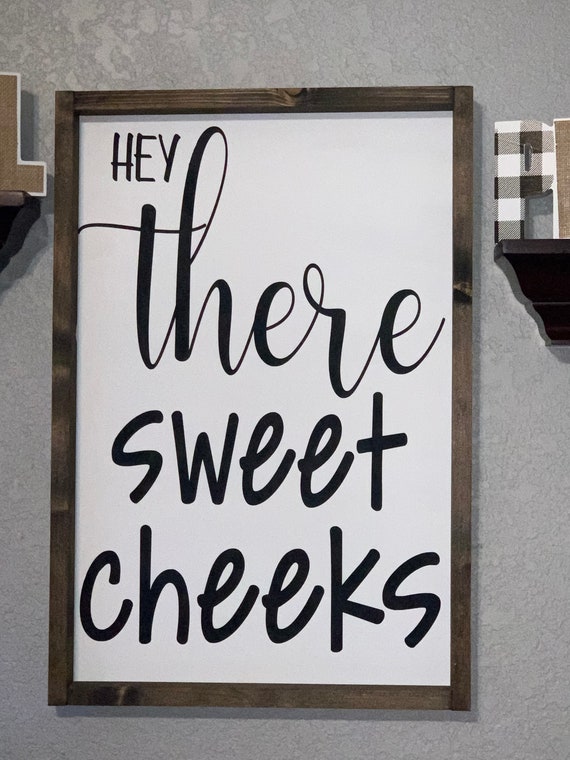 HEY
there
sweet
cheeks